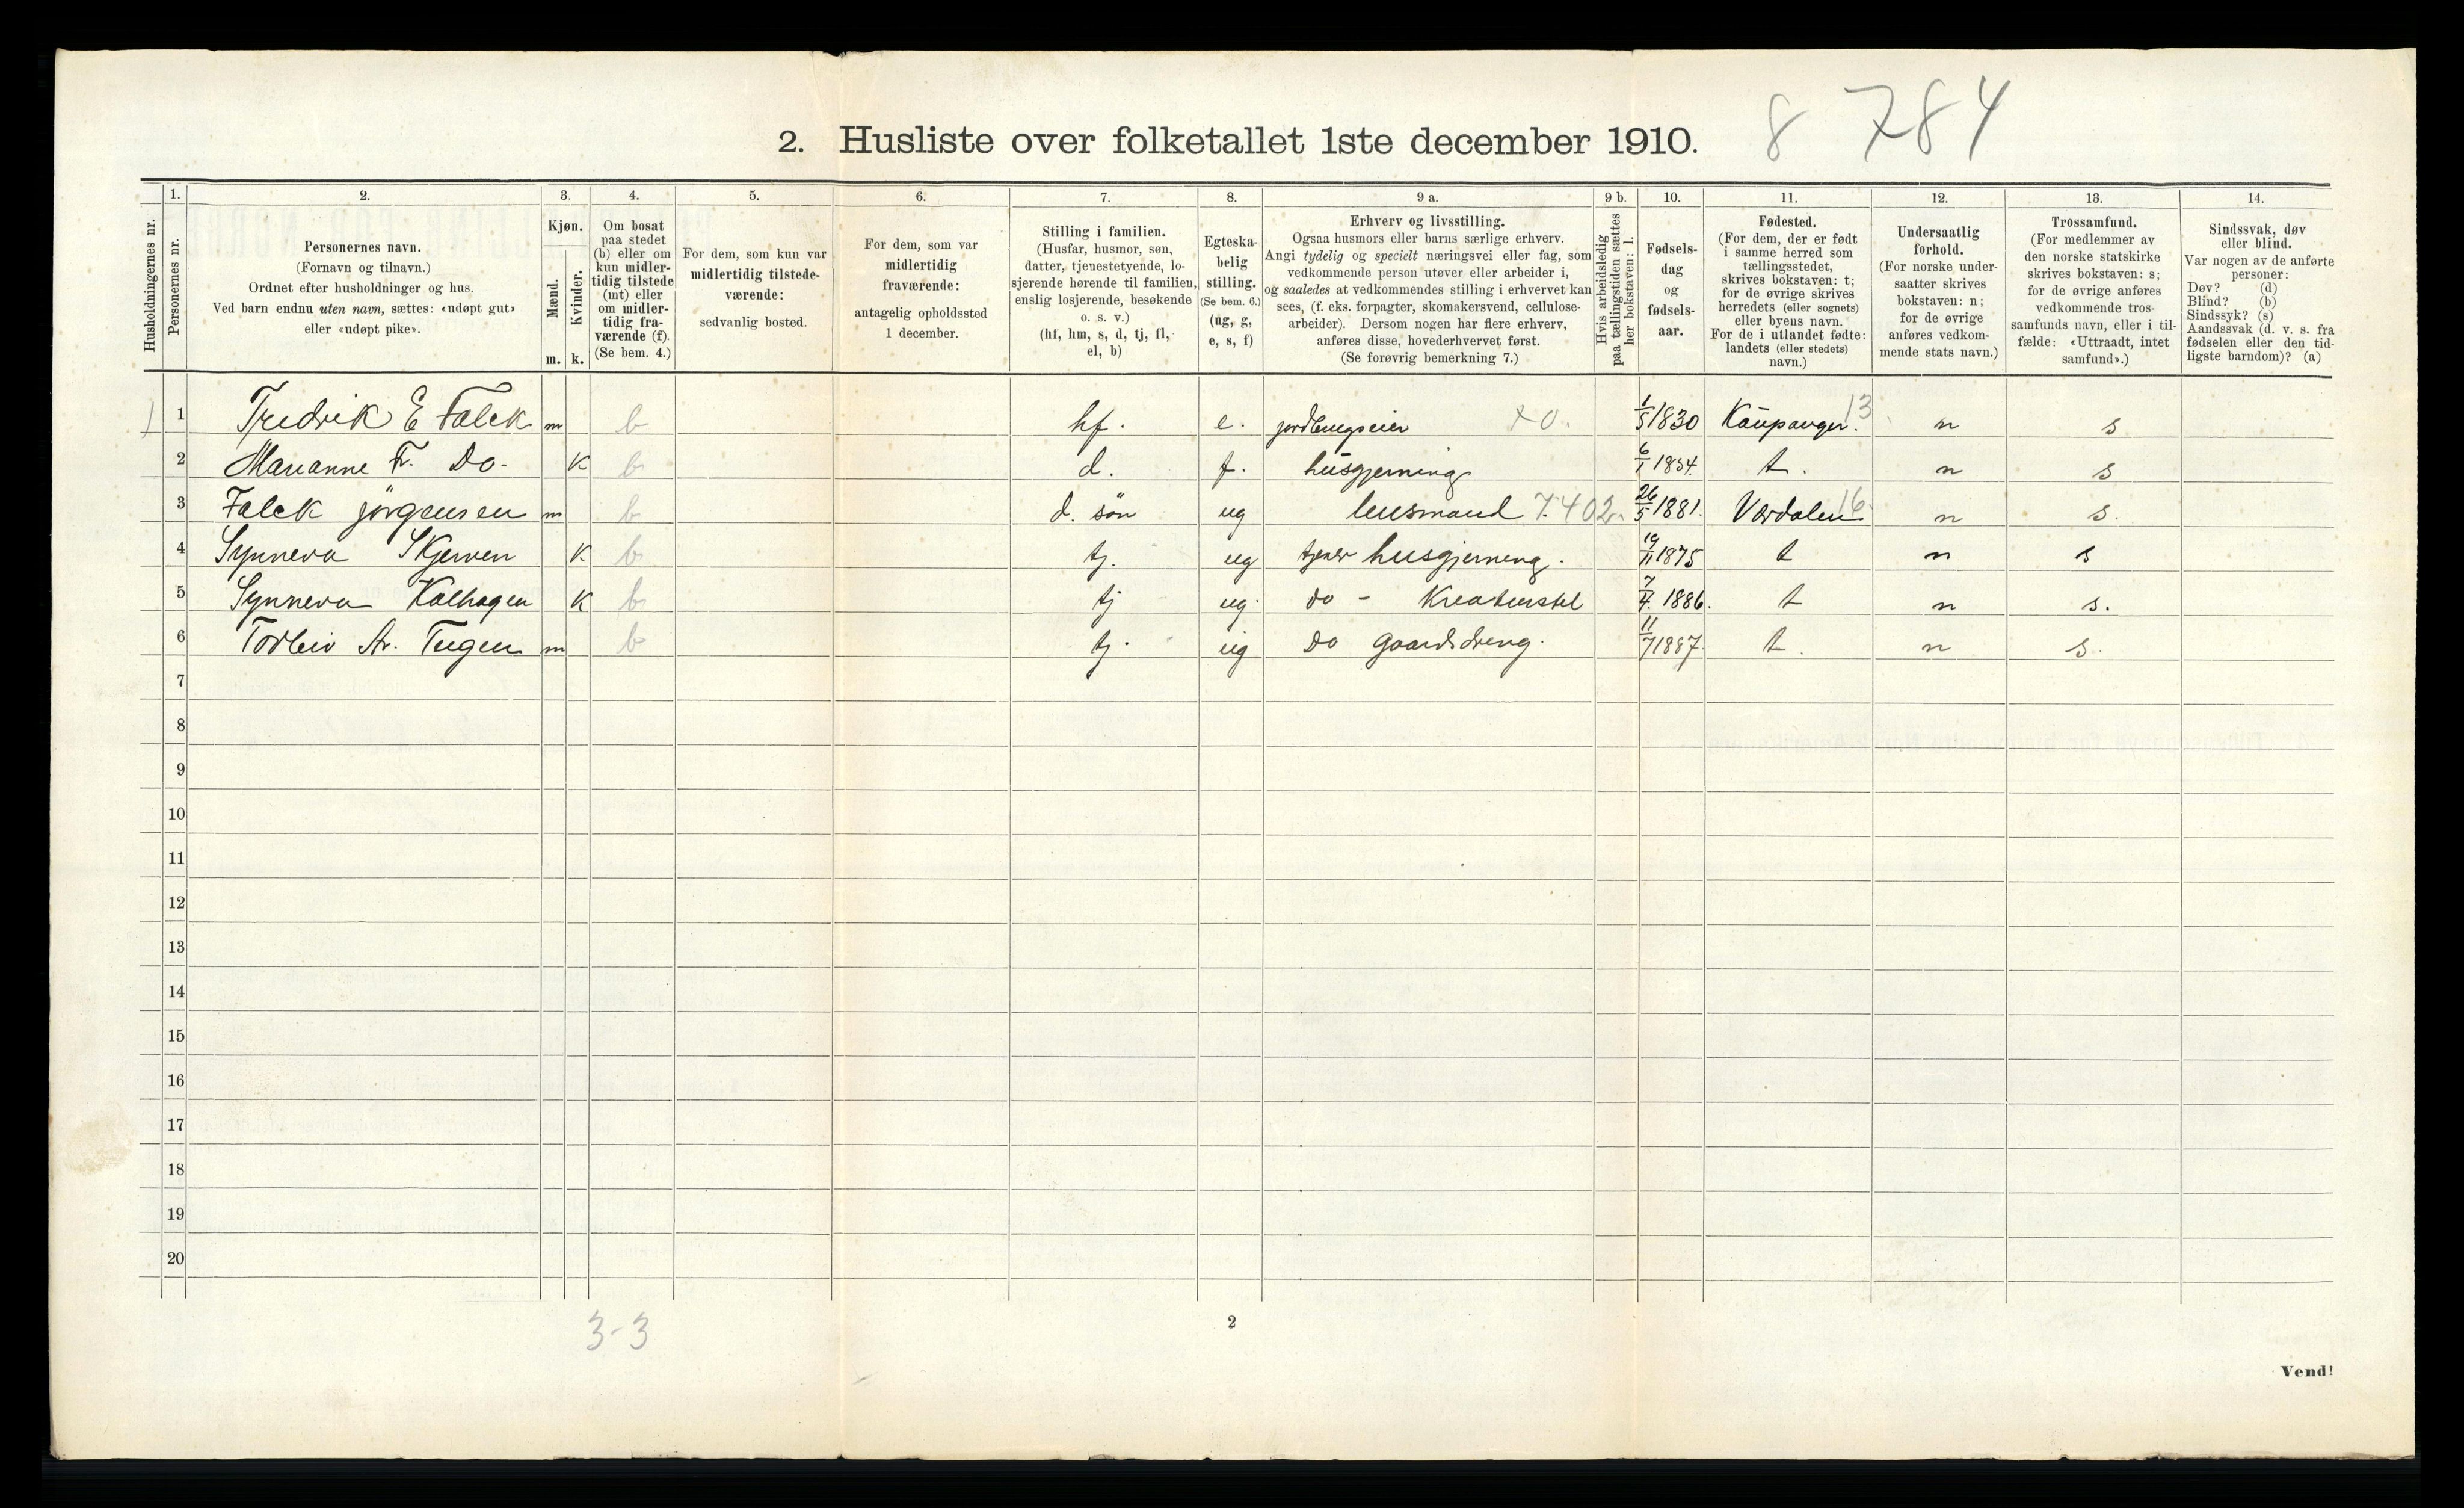 8 784
2. Husliste over folketallet 1ste december 1910.
Husholdningernes nr.
1.
Personernes nr.
2.
Personernes navn.
(Fornavn og tilnavn.)
Ordnet efter husholdninger og hus.
Ved barn endnu uten navn, sættes: «udøpt gut»
eller «udøpt pike».
3.
Kjøn.
Mænd.
m.
Kvinder.
k.
4.
Om bosat
paa stedet
(b) eller om
kun midler-
tidig tilstede
(mt) eller
om midler-
tidig fra-
værende (f).
(Se bem. 4.)
5.
For dem, som kun var
midlertidig tilstede-
værende:
sedvanlig bosted.
6.
For dem, som var
midlertidig
fraværende:
antagelig opholdssted
1 december.
7.
Stilling i familien.
(Husfar, husmor, søn,
datter, tjenestetyende, lo-
sjerende hørende til familien,
enslig losjerende, besøkende
o. s. v.)
(hf, hm, s, d, tj, fl,
el, b)
8.
Egteska-
belig
stilling.
(Se bem. 6.)
(ug, g,
e, s, f)
9 a.
Erhverv og livsstilling.
Ogsaa husmors eller barns særlige erhverv.
Angi tydelig og specielt næringsvei eller fag, som
vedkommende person utøver eller arbeider i,
og saaledes at vedkommendes stilling i erhvervet kan
sees, (f. eks. forpagter, skomakersvend, cellulose-
arbeider). Dersom nogen har flere erhverv,
anføres disse, hovederhvervet først.
(Se forøvrig bemerkning 7.)
9 b.
Hvis arbeidsledig
paa tællingstiden sættes
her bokstaven: l.
10.
Fødsels-
dag
og
fødsels-
aar.
11.
Fødested.
(For dem, der er født
i samme herred som
tællingsstedet,
skrives bokstaven: t;
for de øvrige skrives
herredets (eller sognets)
eller byens navn.
For de i utlandet fødte:
landets (eller stedets)
navn.)
12.
Undersaatlig
forhold.
(For norske under-
saatter skrives
bokstaven: n;
for de øvrige
anføres vedkom-
mende stats navn.)
13.
Trossamfund.
(For medlemmer av
den norske statskirke
skrives bokstaven: s;
for de øvrige anføres
vedkommende tros-
samfunds navn, eller i til-
fælde: «Uttraadt, intet
samfund».)
14.
Sindssvak, døv
eller blind.
Var nogen av de anførte
personer:
Døv? (d)
Blind? (b)
Sindssyk? (s)
Aandssvak (d. v. s. fra
fødselen eller den tid-
ligste barndom)? (a)
1 1 Fredrik E Falck m b hf. e. jordbrugseier 1/5 1830 Kaupanger. 13 n s
2 Marianne Fr. Do. K b d. f. husgjerning 6/1 1854. t. n s
3 Falck jörgensen m b d. sön ug husmand 7.402. 26/5 1881. Værdalen 16 n s.
4 Synneva Skjerven K b tj. ug tjener husgjerning. 19/11 1875 t n s
5 Synneva Kalhagen K b tj ug. do - Kreaturstel 7/4. 1886. t n s.
6 m b tj. ug Do Gaardsdreng. 11/7 1887. t. n s.
7
8
9
10
11
12
13
14
15
16
17
18
19
20
3-3
2
Vend!